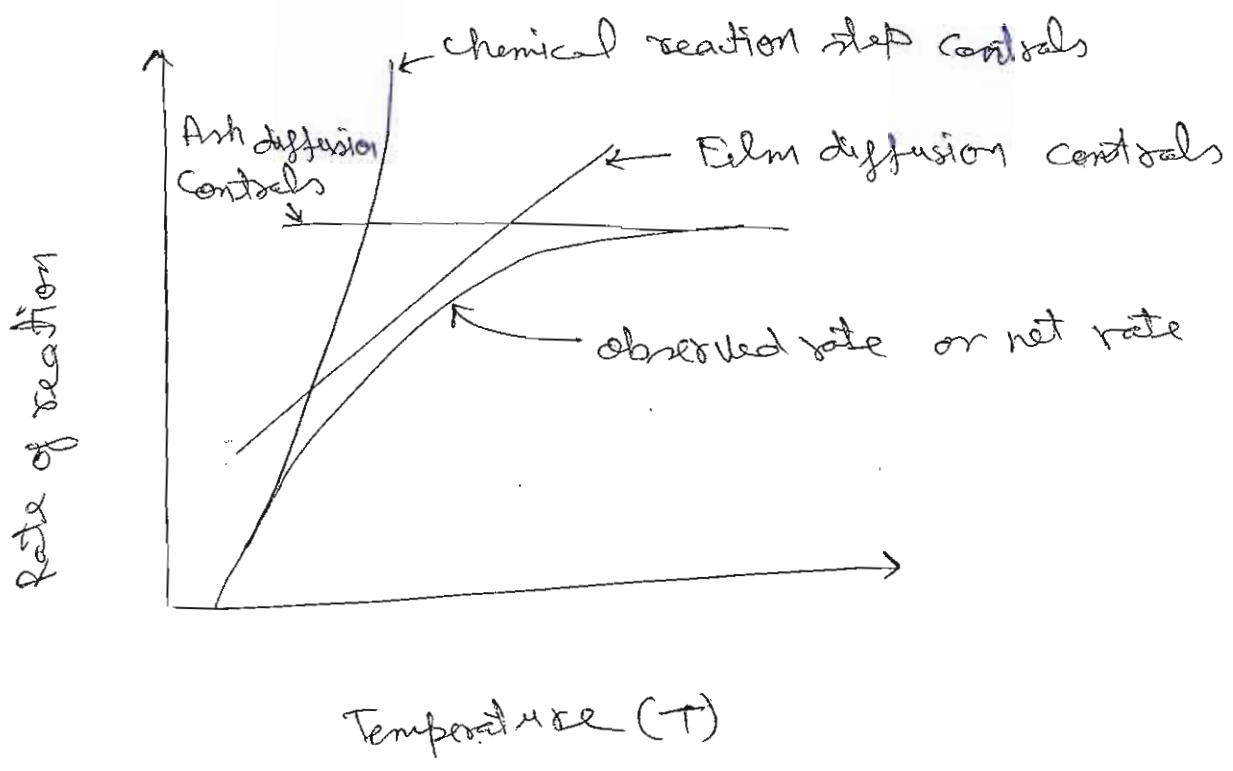 Chemical reaction step controls
Ash diffusion
Controls
Film diffusion controls
Observed rate or net rate
Rate of reaction
Temperature (T)